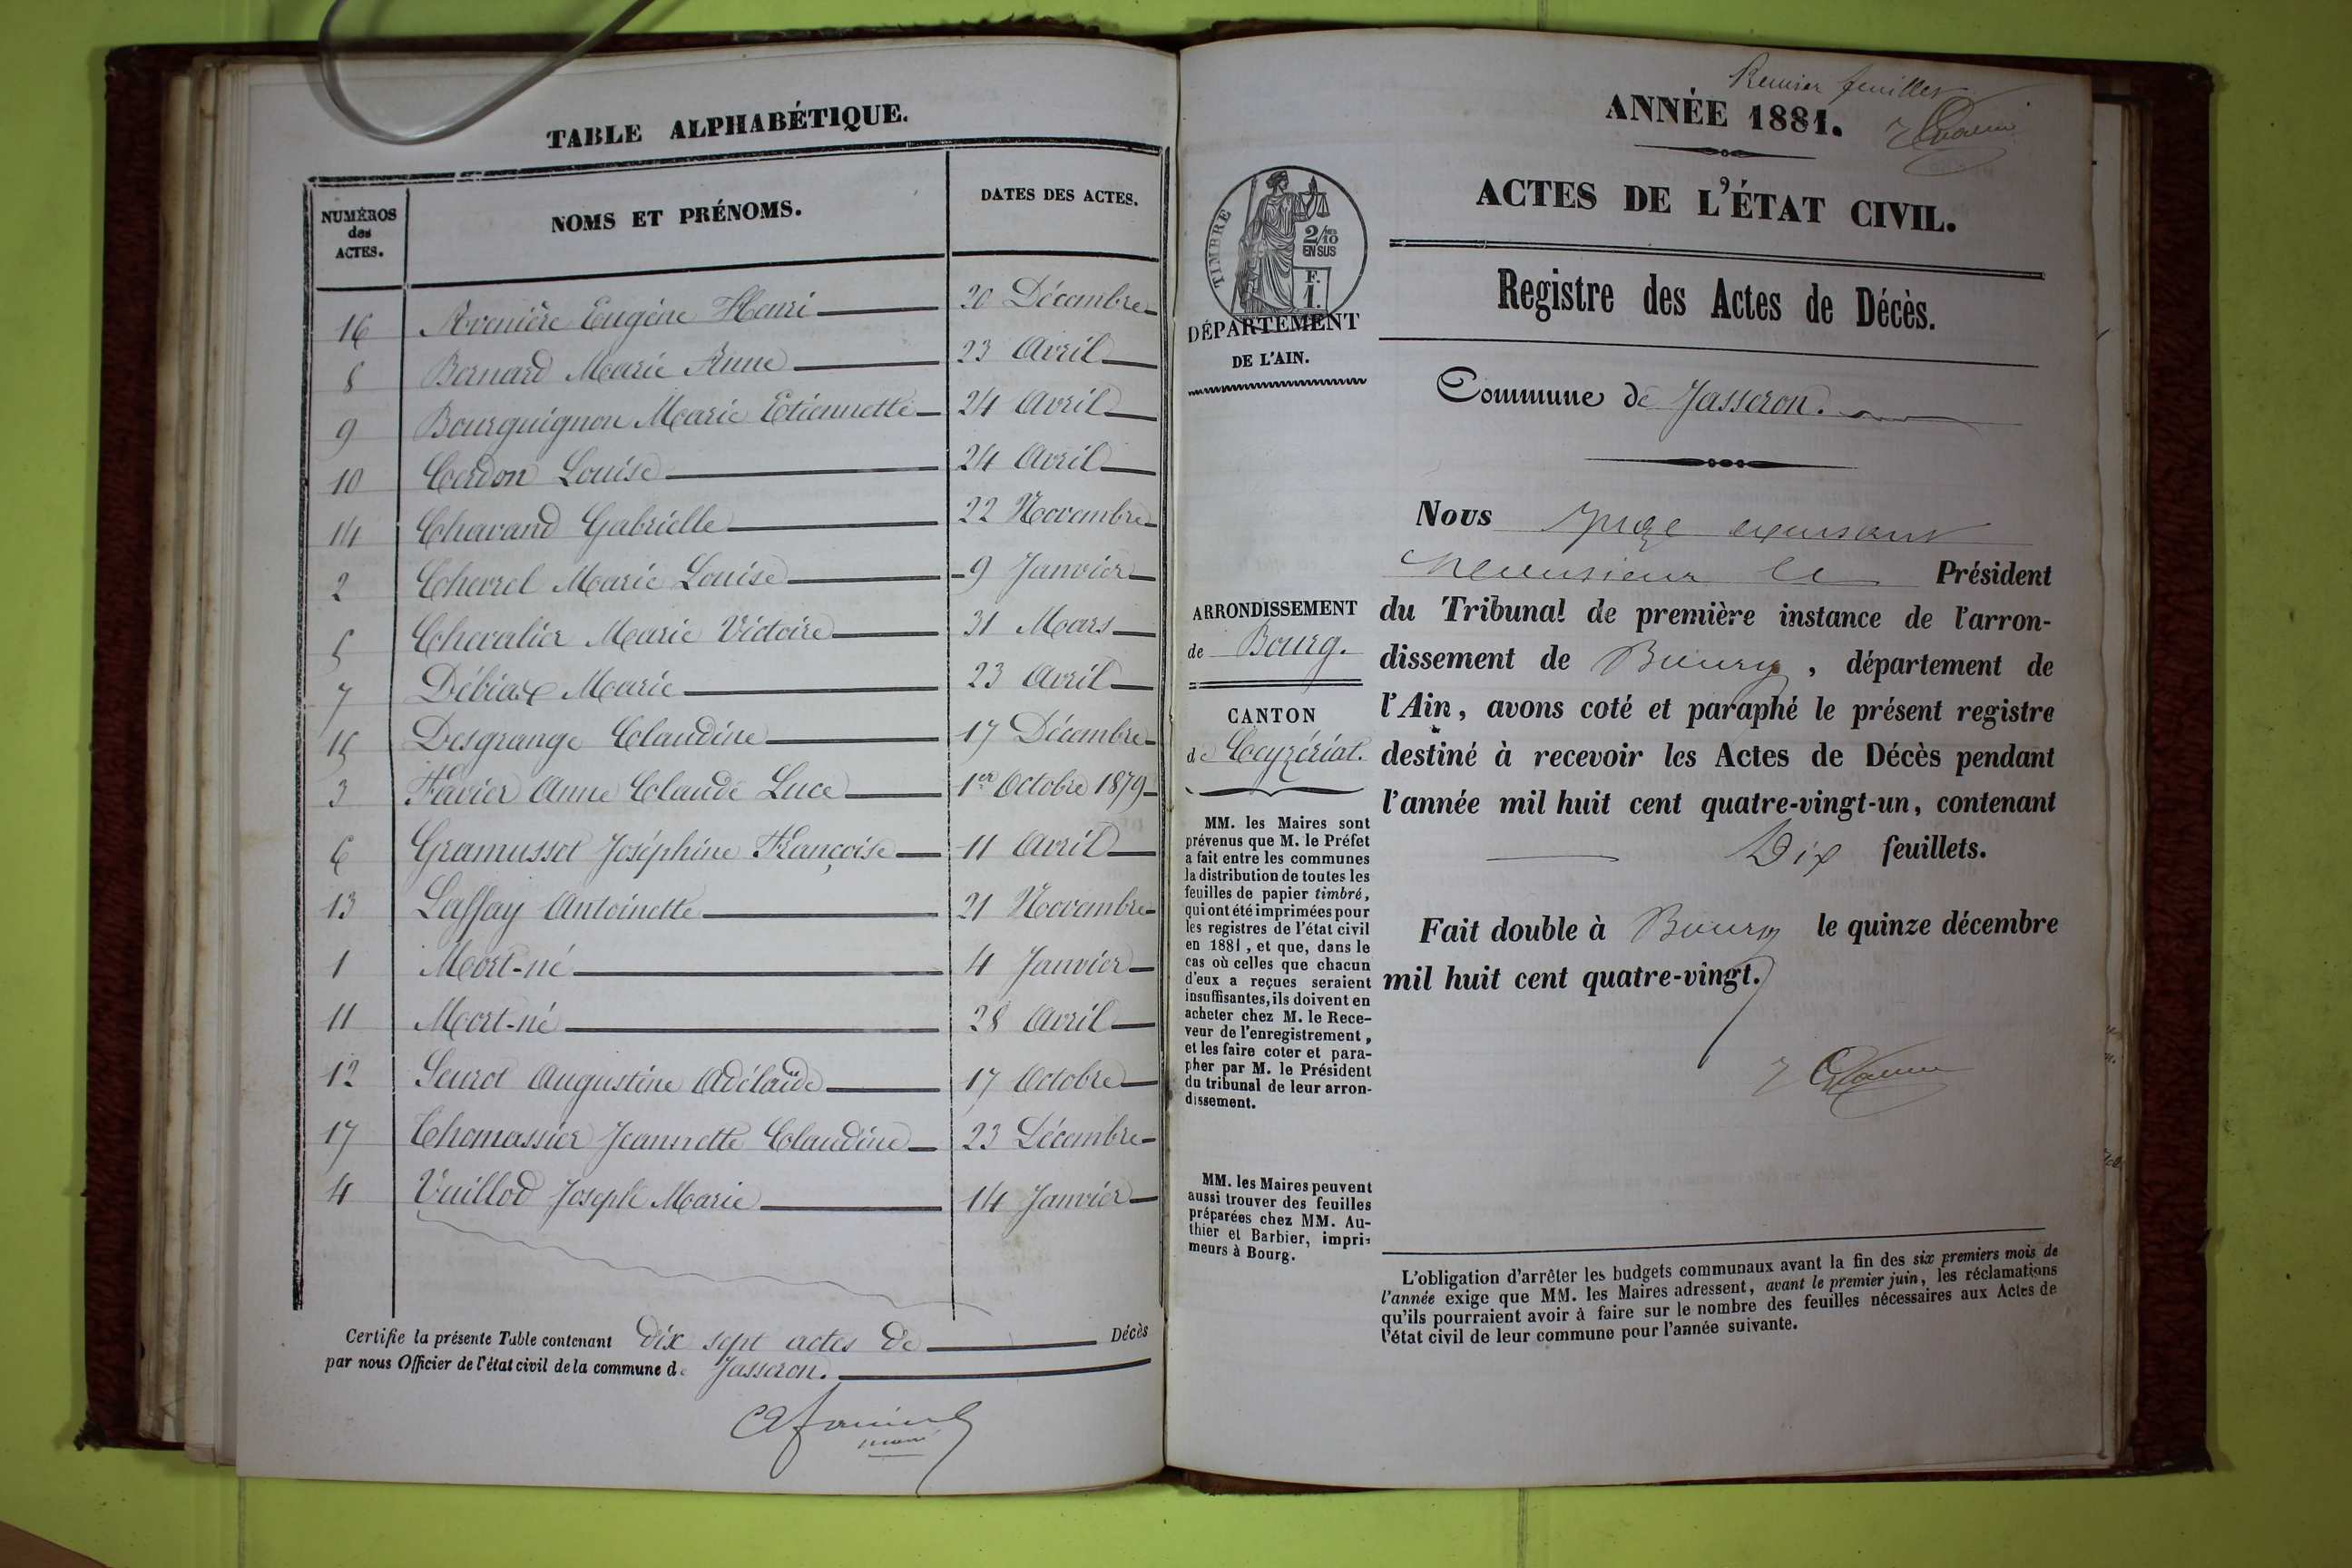 TABLE ALPHABÉTIQUE.
NUMÉROS
des
ACTES.
NOMS ET PRÉNOMS.
DATES DES ACTES.
16 Avenière Eugène Henri 20 Décembre
8 Bernard Marie Anne 23 Avril
9 Bourguignon Marie Etiennette 24 Avril
10 Cerdon Louise 24 Avril
14 Chavand Gabrielle 22 Novembre
2 Chevrel Marie Louise 9 Janvier
5 Chevalier Marie Victoire 31 Mars
7 Débiax Marie 23 Avril
15 Desgrange Claudine 17 Décembre
3 Favier Anne Claude Luce 1er Octobre 1879
6 Gramusset Joséphine Françoise 11 Avril
13 Laffay Antoinette 21 Novembre
1 Mort-né 4 Janvier
11 Mort-né 28 Avril
12 Seurot Augustine Adélaïde 17 Octobre
17 Thomassier Jeannette Claudine 23 Décembre
4 Vuillod Joseph Marie 14 Janvier
Certifie la présente Table contenant dix sept actes de Décès
par nous Officier de l'état civil de la commune de Jasseron.
maire
Premier feuillet
ANNÉE 1881.
ACTES DE L'ÉTAT CIVIL.
Registre des Actes de Décès.
Commune de Jasseron.
TIMBRE
2/10
EN SUS
F.
1.
DÉPARTEMENT
DE L'AIN.
ARRONDISSEMENT
de Bourg.
CANTON
de Ceyzériat.
MM. les Maires sont
prévenus que M. le Préfet
a fait entre les communes
la distribution de toutes les
feuilles de papier timbré,
qui ont été imprimées pour
les registres de l'état civil
en 1881, et que, dans le
cas où celles que chacun
d'eux a reçues seraient
insuffisantes, ils doivent en
acheter chez M. le Rece-
veur de l'enregistrement,
et les faire coter et para-
pher par M. le Président
du tribunal de leur arron-
dissement.
MM. les Maires peuvent
aussi trouver des feuilles
préparées chez MM. Au-
thier et Barbier, impri-
meurs à Bourg.
Nous Juge
Monsieur le Président
du Tribunal de première instance de l'arron-
dissement de Bourg, département de
l'Ain, avons coté et paraphé le présent registre
destiné à recevoir les Actes de Décès pendant
l'année mil huit cent quatre-vingt-un, contenant
Dix feuillets.
Fait double à Bourg le quinze décembre
mil huit cent quatre-vingt.
L'obligation d'arrêter les budgets communaux avant la fin des six premiers mois de
l'année exige que MM. les Maires adressent, avant le premier juin, les réclamations
qu'ils pourraient avoir à faire sur le nombre des feuilles nécessaires aux Actes de
l'état civil de leur commune pour l'année suivante.